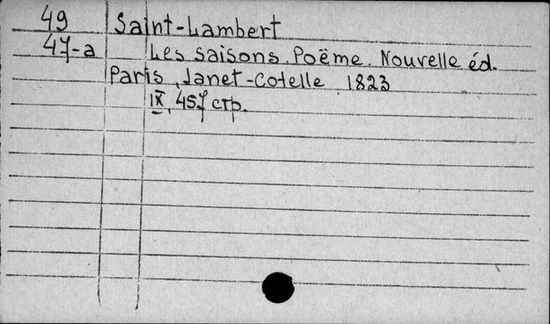 49 Saint-Lambert
47-a Les saisons. Poëme. Nouvelle éd.
Paris, Janet-Cotelle 1823
IX, 457 стр.